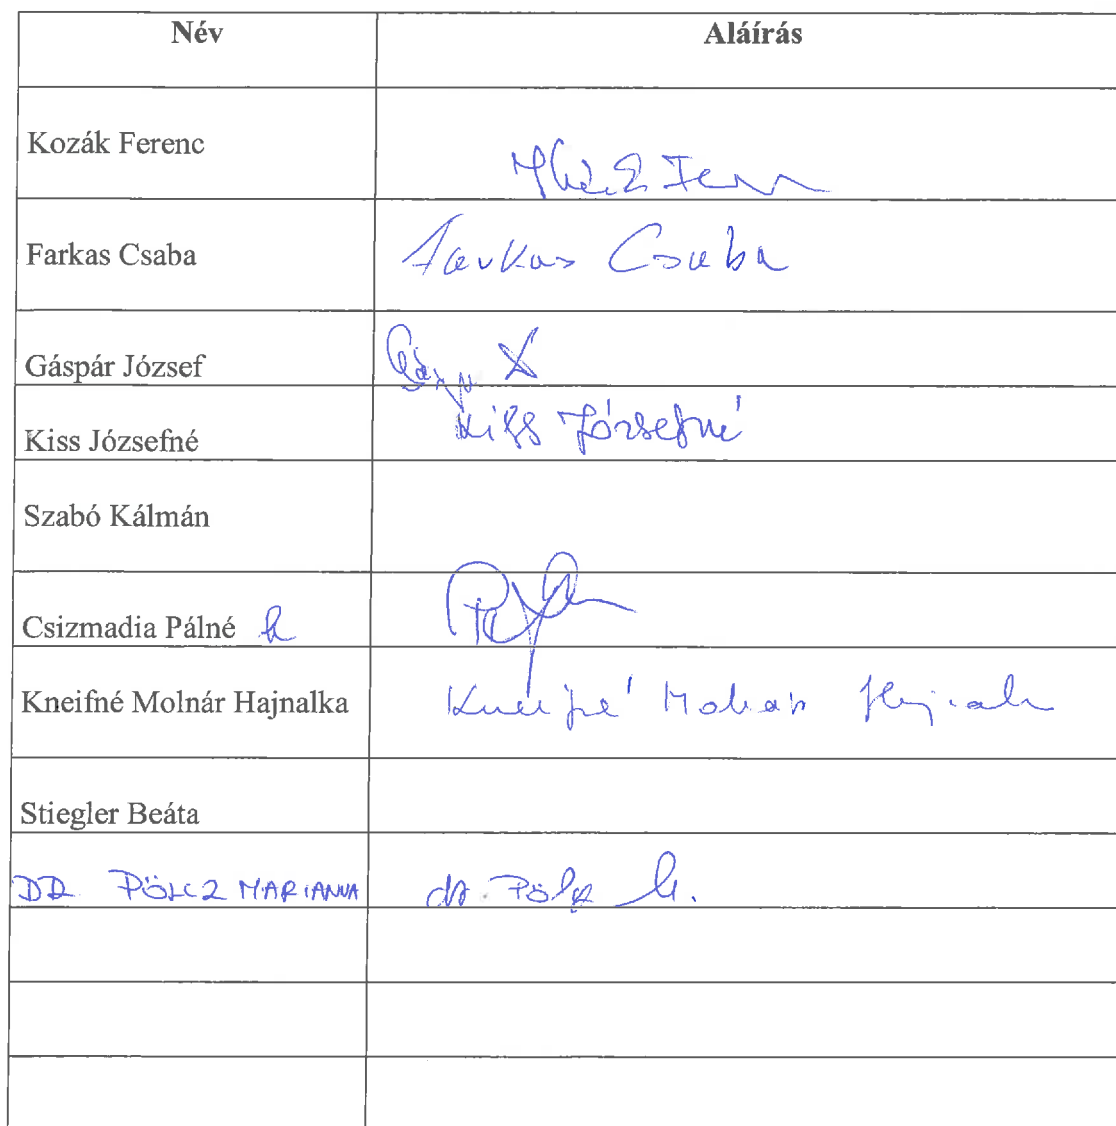 Név Aláírás
Kozák Ferenc
Farkas Csaba Farkas Csaba
Gáspár József
Kiss Józsefné Kiss Józsefné
Szabó Kálmán
Csizmadia Pálné
Kneifné Molnár Hajnalka Kneifné Molnár Hajnalka
Stiegler Beáta
DR. PÖLCZ MARIANNA dr. Pölcz M.